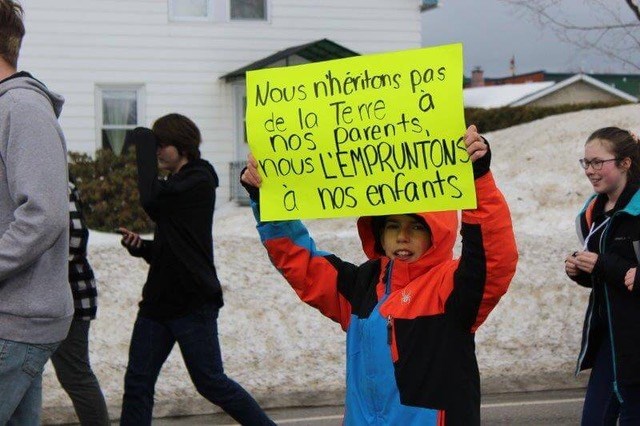 Nous n'héritons pas
de la Terre à
nos parents,
nous L'EMPRUNTONS
à nos enfants